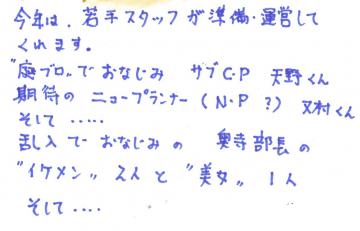 今年は、若手スタッフが準備・運営して
くれます。
"庭ブロ"でおなじみ サブC・P 天野くん
期待の ニュープランナー(N・P ?) 又村くん
そして ‥‥‥
乱入でおなじみの 奥寺部長の
"イケメン" 2人と "美女" 1人
そして ‥‥